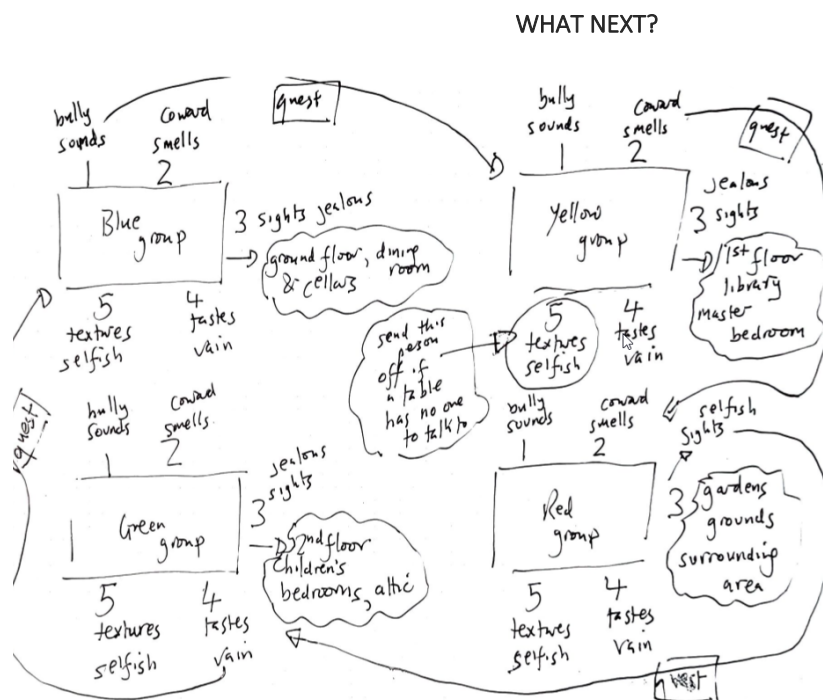 WHAT NEXT?
quest
bully
sounds
1
coward
smells
2
Blue
group
3 sights jealous
ground floor, dining
room
& cellars
5
textures
selfish
4
tastes
vain
bully
sounds
1
coward
smells
2
quest
Yellow
group
jealous
3 sights
1st floor
library
master
bedroom
5
textures
selfish
4
tastes
vain
send this
person
off if
a table
has no one
to talk to
quest
bully
sounds
1
coward
smells
2
Green
group
jealous
sights
3
2nd floor
children's
bedrooms, attic
5
textures
selfish
4
tastes
vain
bully
sounds
1
coward
smells
2
Red
group
selfish
sights
3
gardens
grounds
surrounding
area
5
textures
selfish
4
tastes
vain
quest